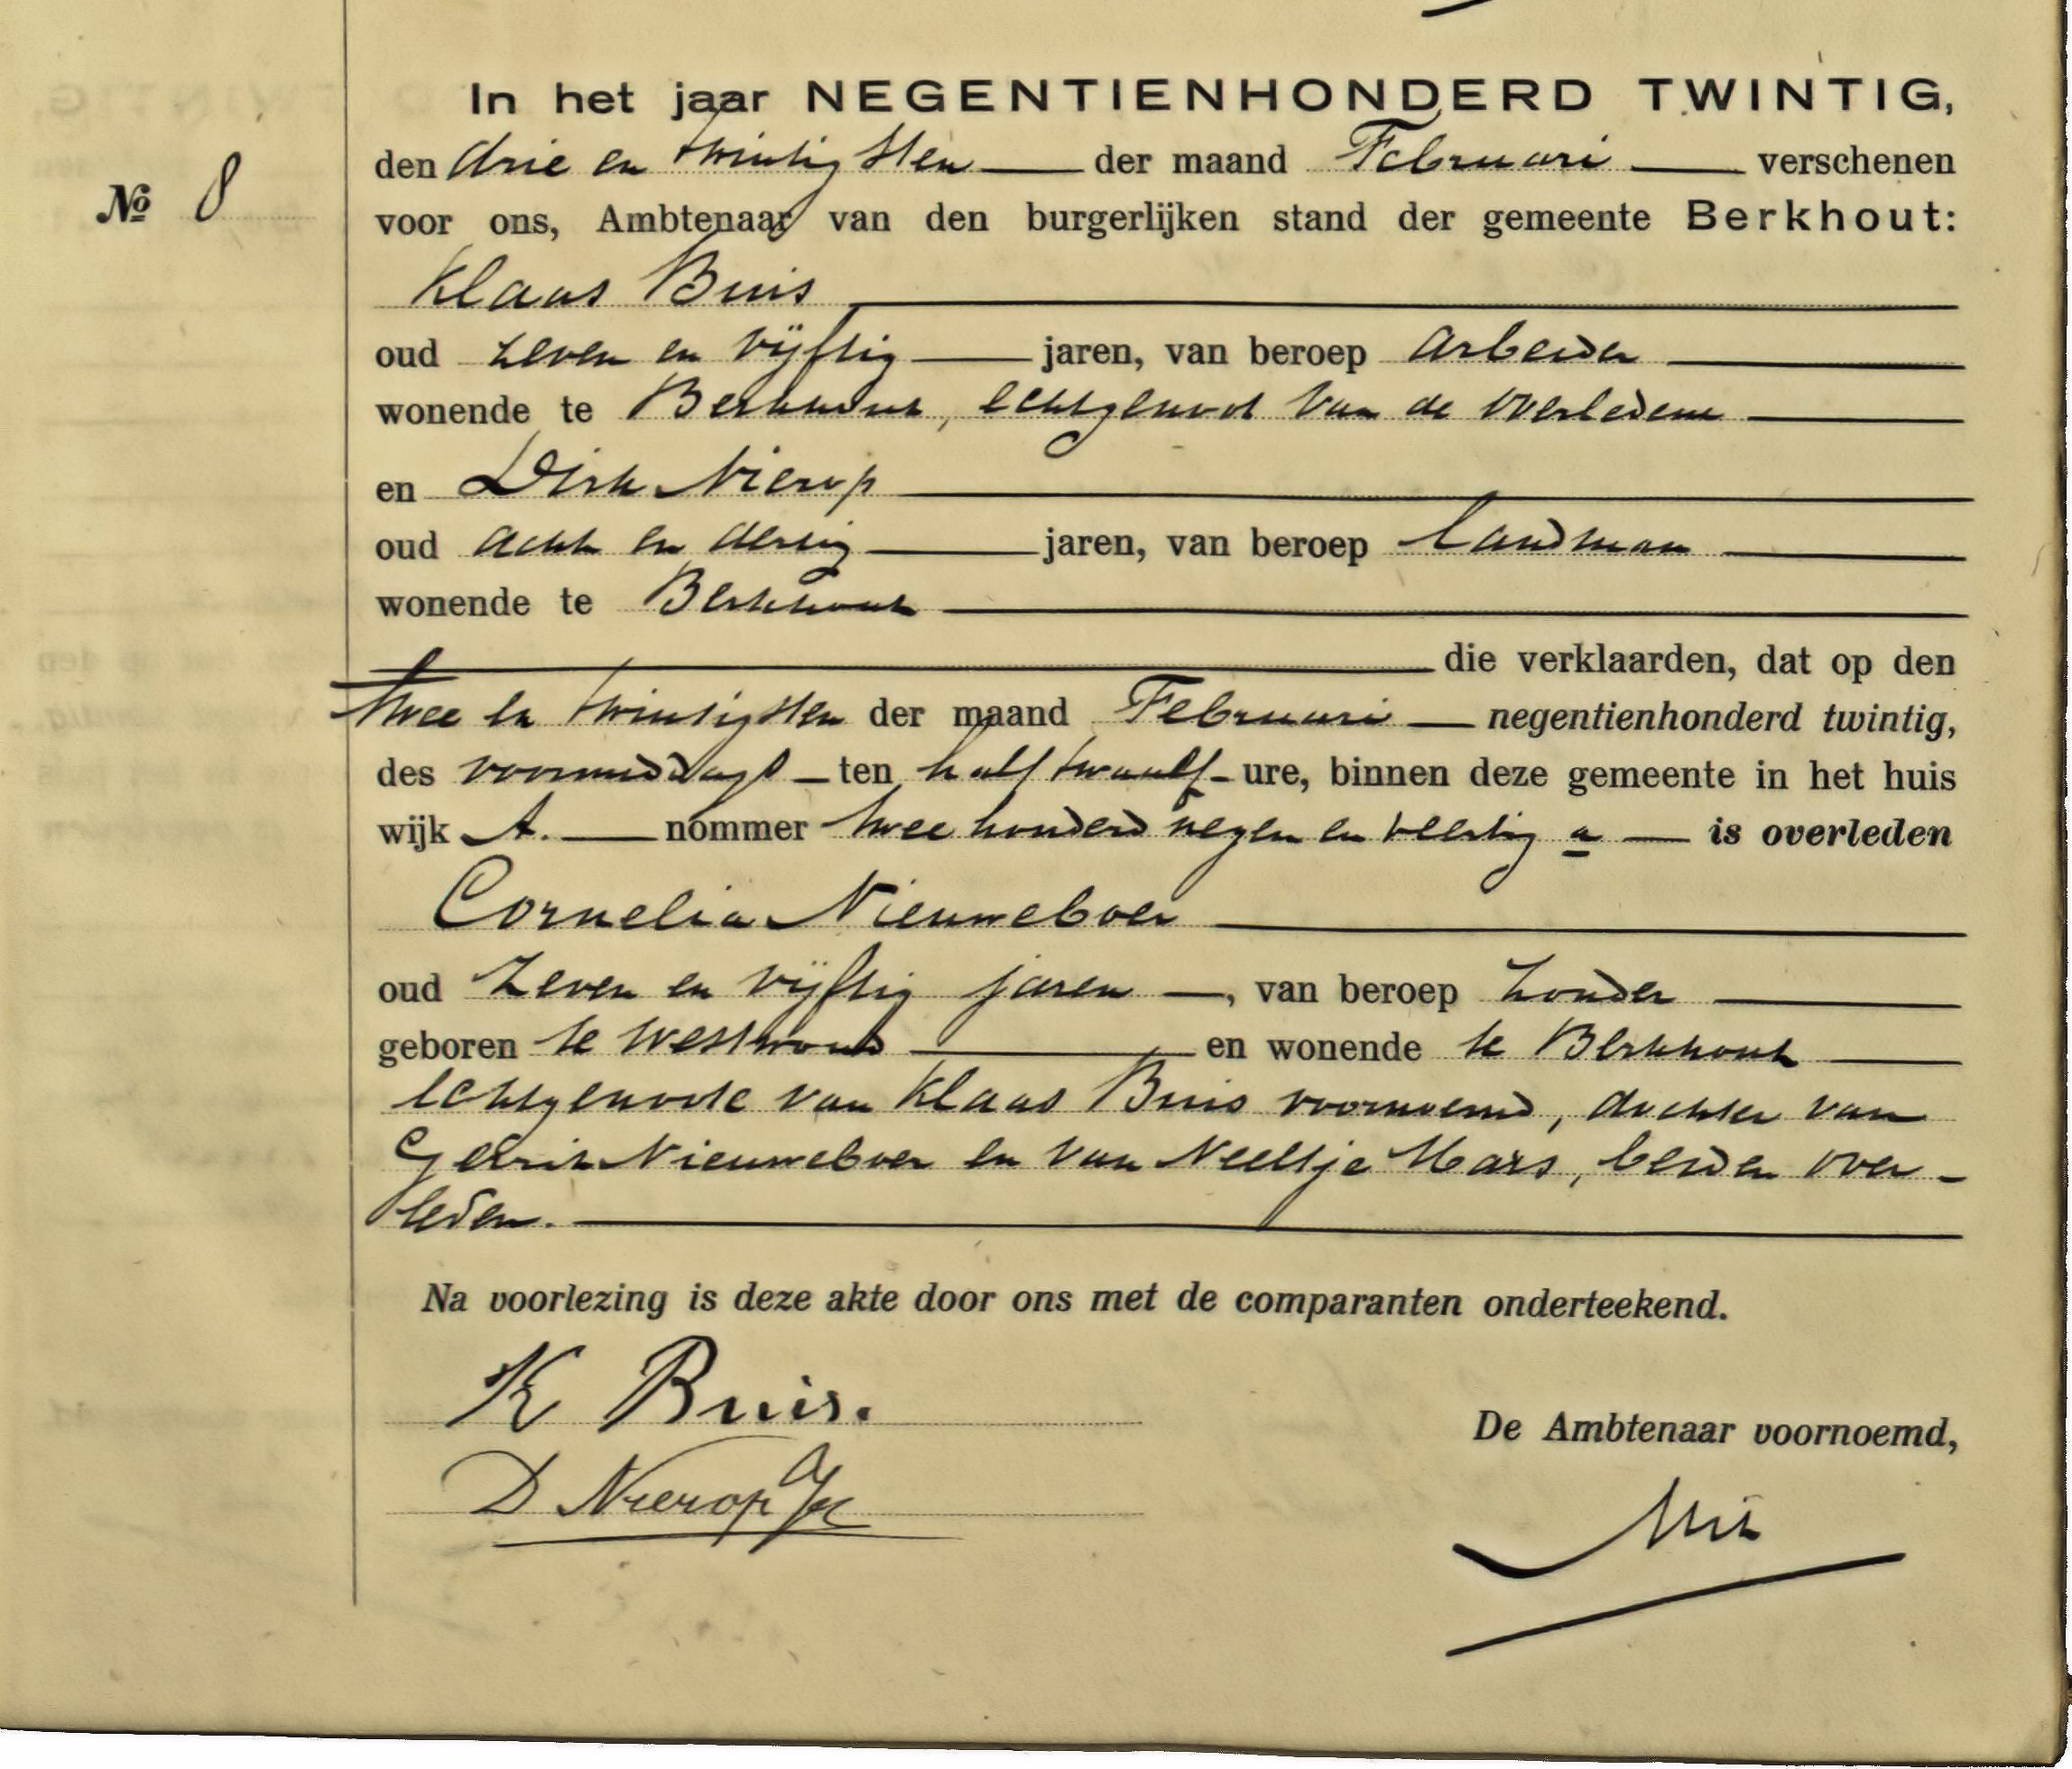 In het jaar NEGENTIENHONDERD TWINTIG,
den drie en twintigsten der maand Februari verschenen
№ 8
voor ons, Ambtenaar van den burgerlijken stand der gemeente Berkhout:
Klaas Buis
oud zeven en vijftig jaren, van beroep arbeider
wonende te Berkhout, echtgenoot van de overledene
en Dirk Nierop
oud acht en dertig jaren, van beroep landman
wonende te Berkhout
die verklaarden, dat op den
twee en twintigsten der maand Februari negentienhonderd twintig,
des voormiddags ten half twaalf ure, binnen deze gemeente in het huis
wijk A. nommer twee honderd negen en veertig a is overleden
Cornelia Nieuweboer
oud zeven en vijftig jaren, van beroep zonder
geboren te Westwoud en wonende te Berkhout
echtgenoote van Klaas Buis voornoemd, dochter van
Gerrit Nieuweboer en van Neeltje Mars, beiden over-
leden.
Na voorlezing is deze akte door ons met de comparanten onderteekend.
K Buis.
De Ambtenaar voornoemd,
D Nierop